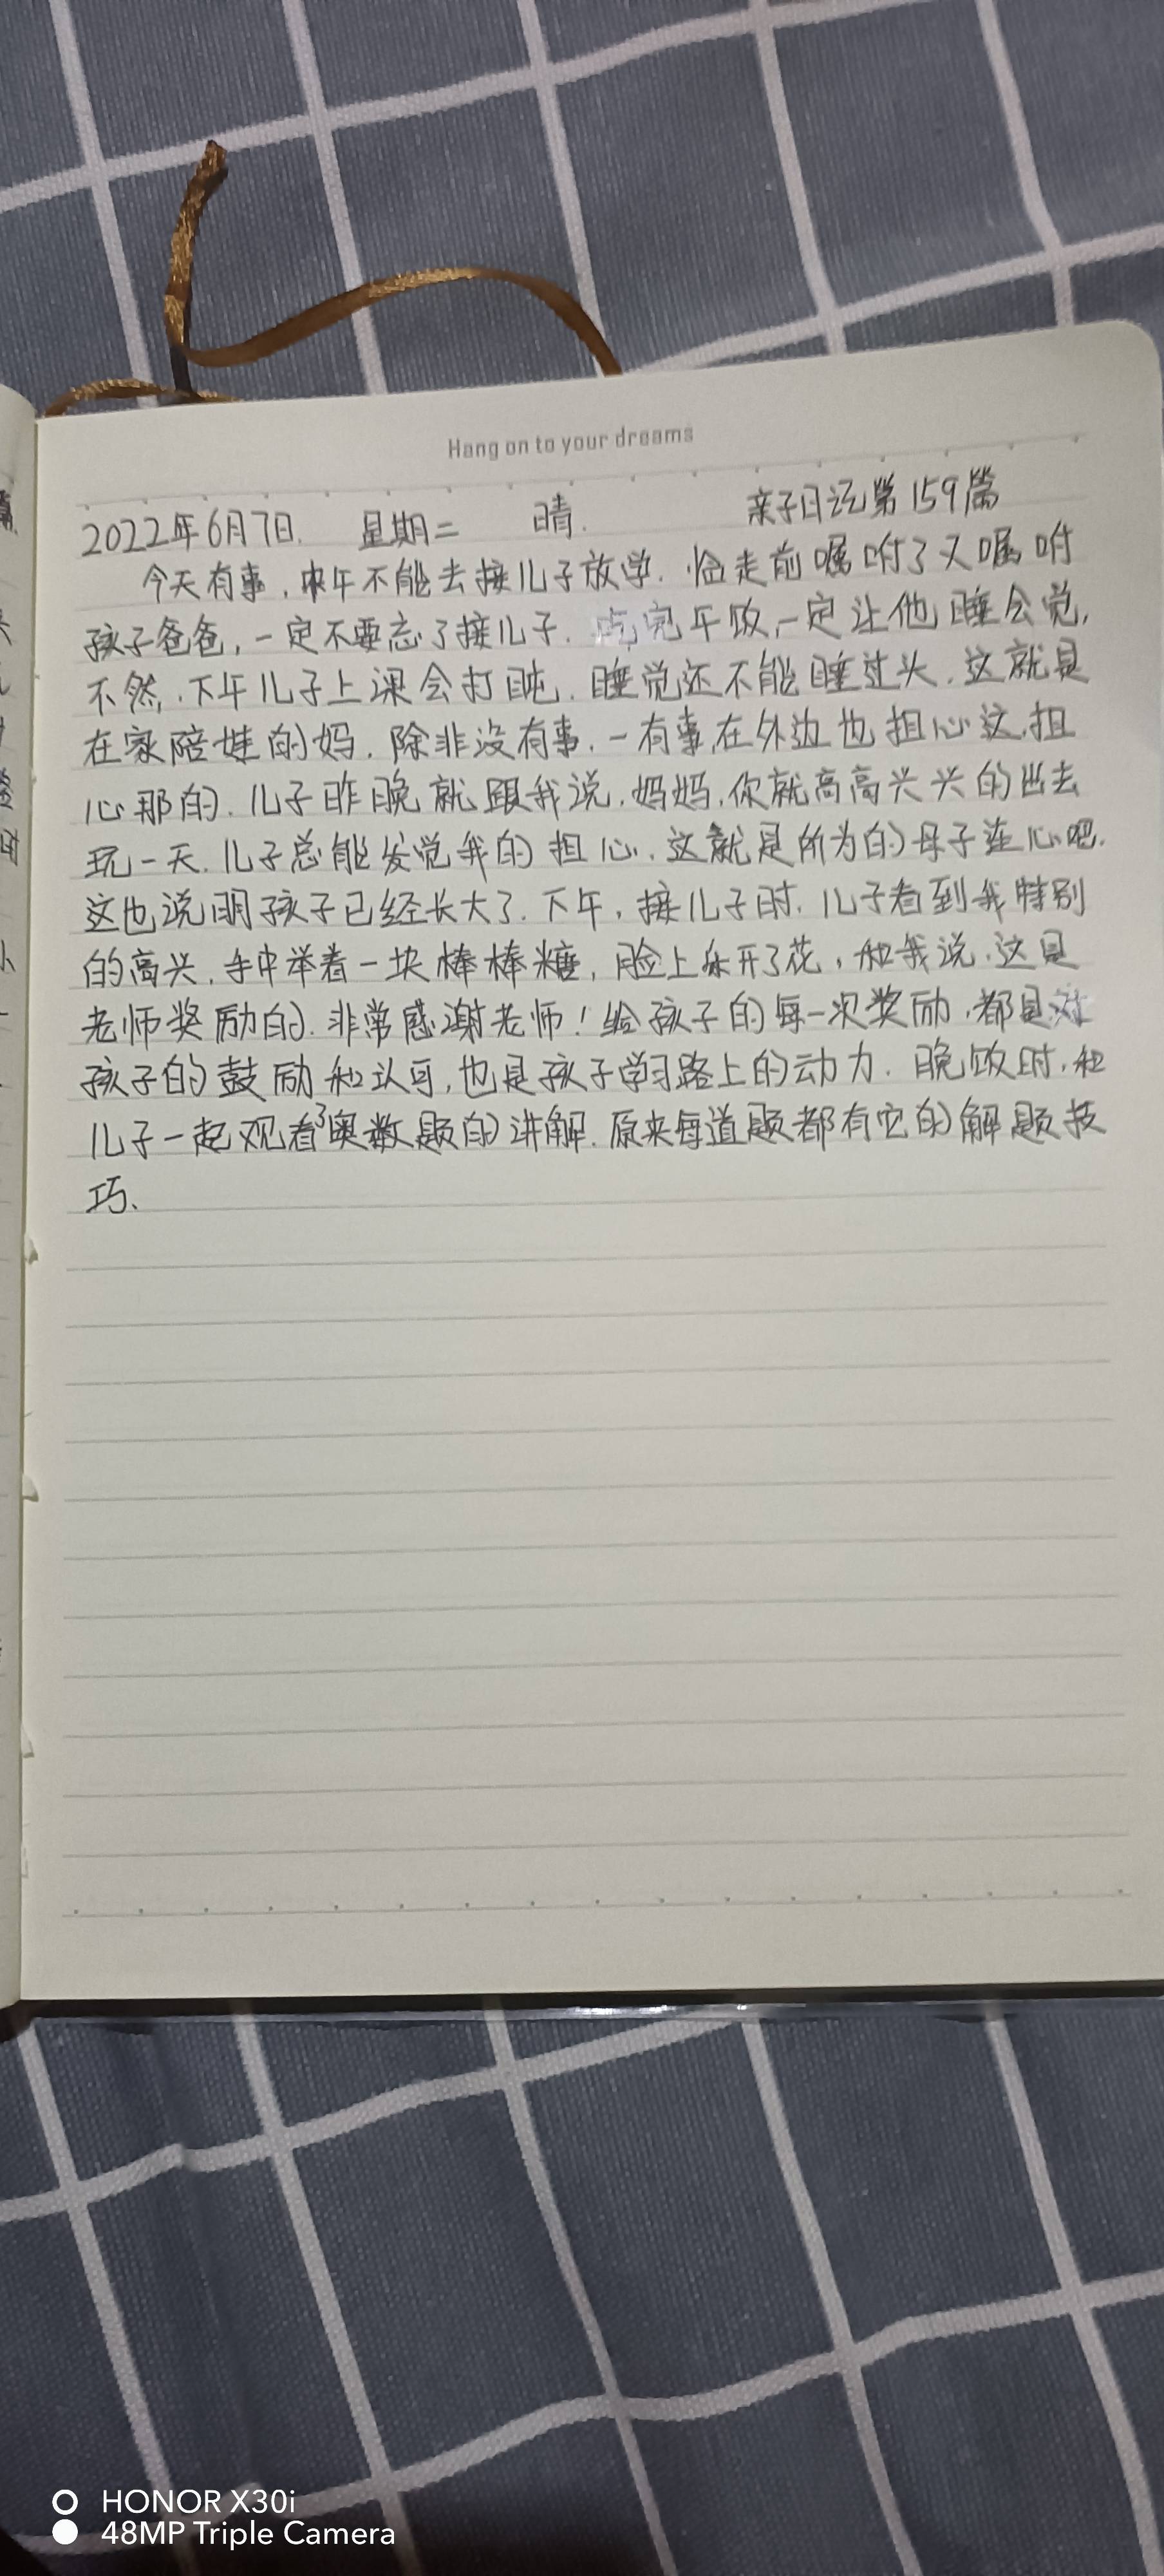 Hang on to your dreams
2022年6月7日. 星期二 晴. 亲子日记第159篇
今天有事,中午不能去接儿子放学.临走前嘱咐了又嘱咐
孩子爸爸,一定不要忘了接儿子.吃完午饭,一定让他睡会觉,
不然,下午儿子上课会打盹.睡觉还不能睡过头.这就是
在家陪娃的妈.除非没有事.一有事,在外边也担心这,担
心那的.儿子昨晚就跟我说.妈妈.你就高高兴兴的出去
玩一天.儿子总能发觉我的担心.这就是所为的母子连心吧.
这也说明孩子已经长大了.下午,接儿子时.儿子看到我特别
的高兴.手中举着一块棒棒糖,脸上乐开了花,和我说.这是
老师奖励的.非常感谢老师!给孩子的每一次奖励,都是对
孩子的鼓励和认可,也是孩子学习路上的动力.晚饭时,和
儿子一起观看了奥数题的讲解.原来每道题都有它的解题技
巧.
HONOR X30i
48MP Triple Camera